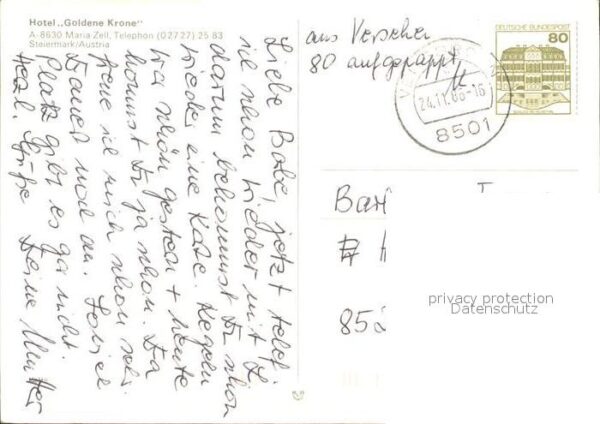 Hotel „Goldene Krone“
A-8630 Maria Zell, Telephon (02727) 25 83
Steiermark/Austria
Liebe Babe, jetzt telef.
ich schon wieder mit D.
darum bekommst Du schon
wieder eine Karte. Regen
war schön gestern + heute
kommst Du ja schon. Da
freue ich mich schon sehr.
Dauert noch an. So viel
Platz gibt es gar nicht.
Herzl. Grüße Deine Mutter
aus Versehen
80 aufgepappt
DEUTSCHE BUNDESPOST
80
24.11.86-16
8501
Bar
852
privacy protection
Datenschutz